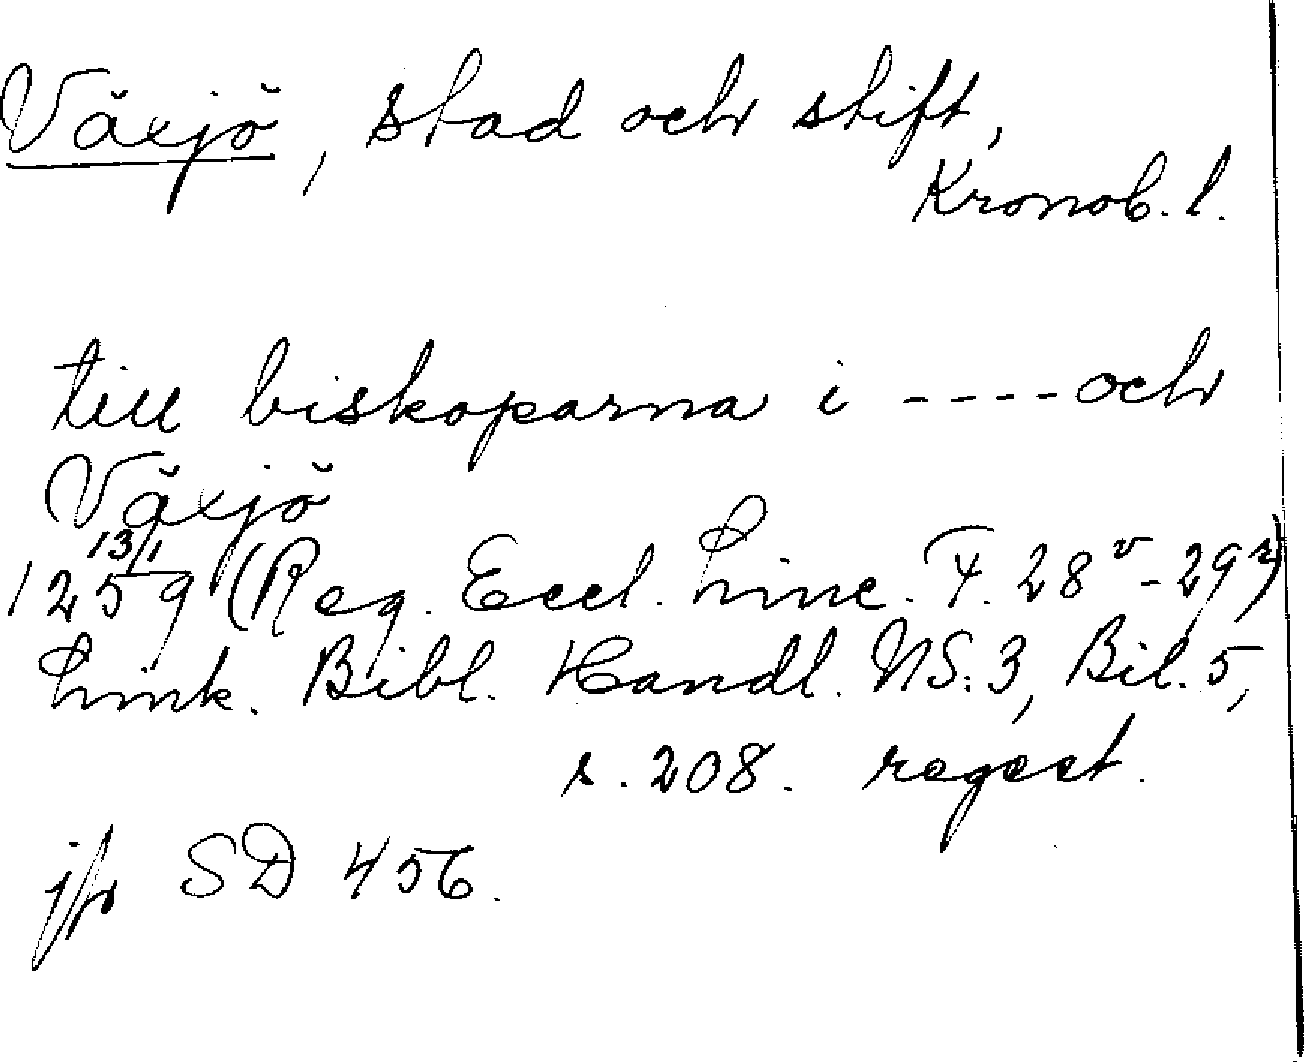 Växjö, stad och stift,
Kronob. l.
till biskoparna i ---- och
Växjö
13/1
1259 (Reg. Eccl. Linc. F. 28v-29r)
Link. Bibl. Handl. NS:3, Bil. 5,
s. 208. regest.
jfr SD 456.